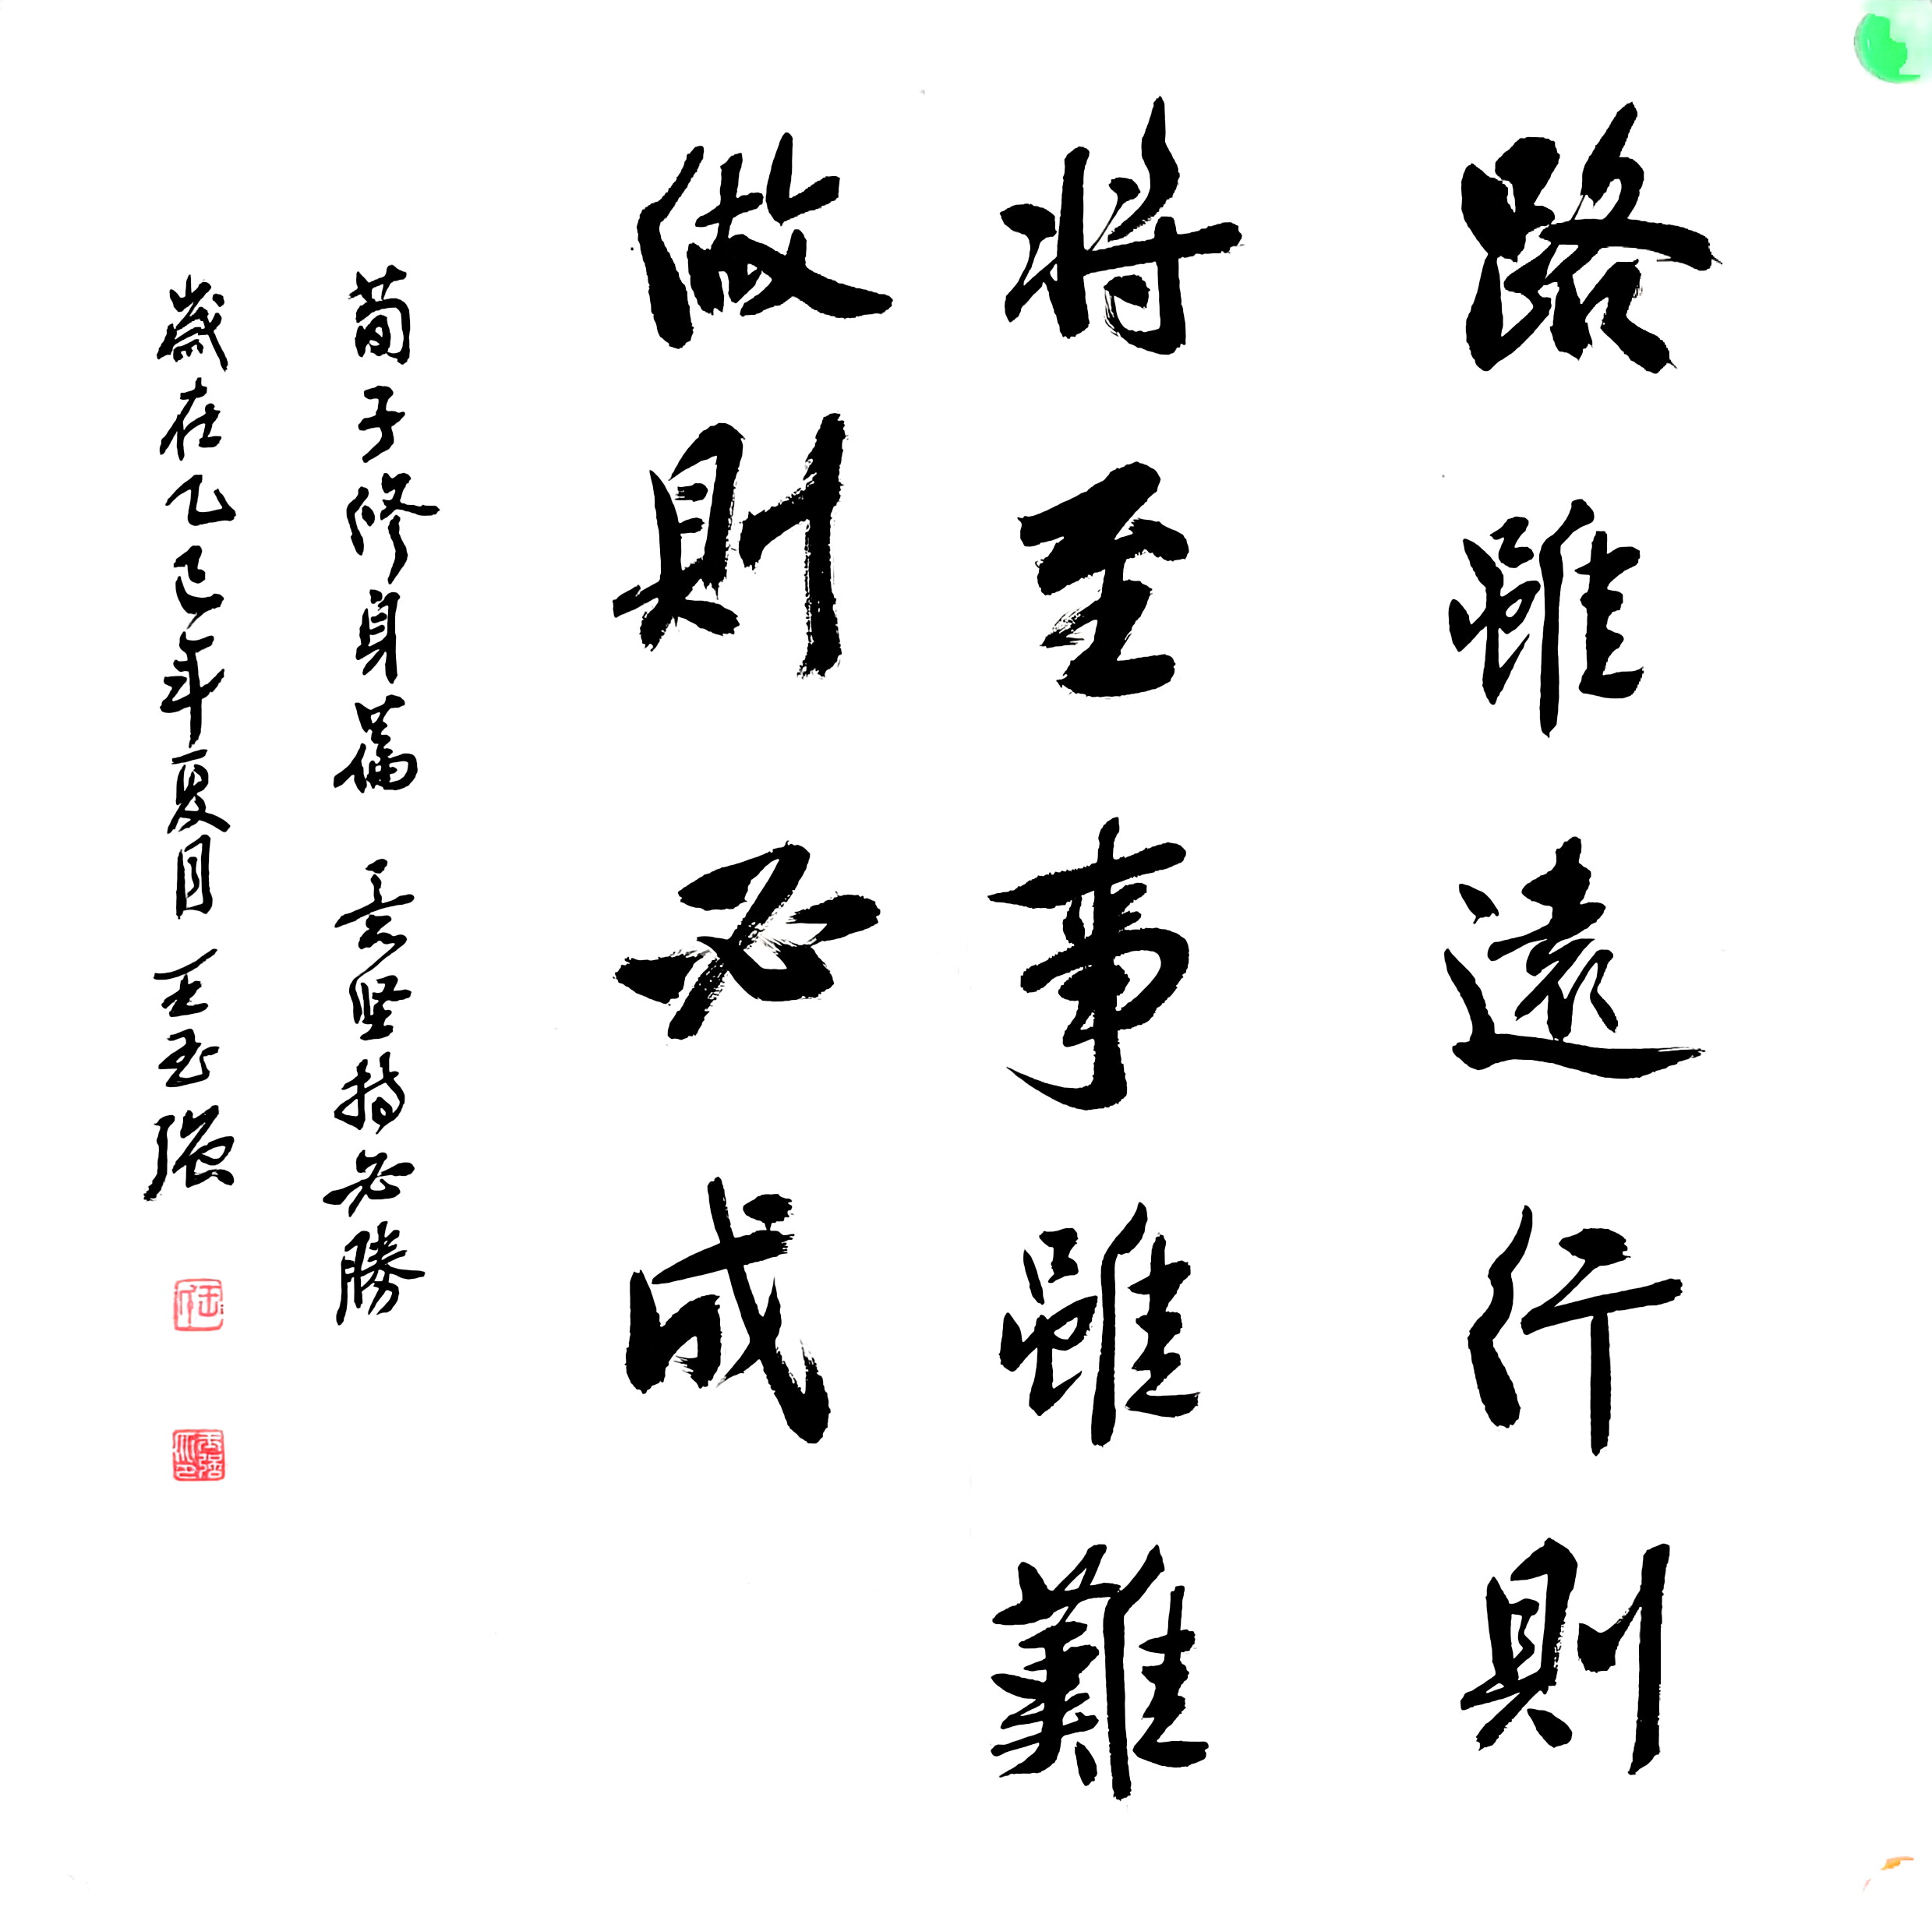 路雖遠行則
将至事雖難
做則必成
荀子修身篇 堅持必勝
歲在乙巳年夏月 王玉